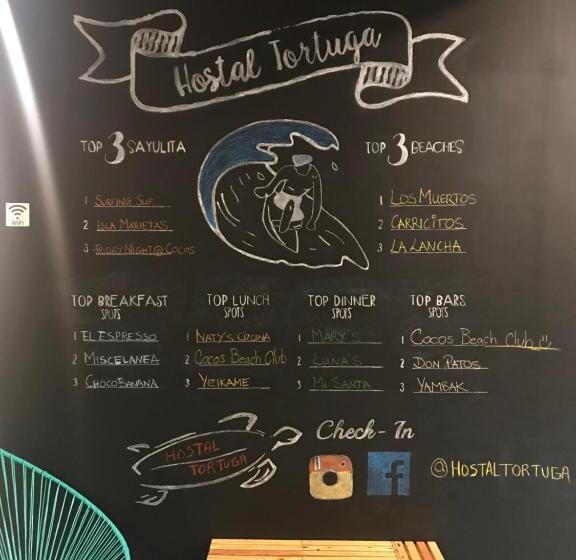 Hostal Tortuga
TOP 3 SAYULITA
1 SURFING SUP
2 ISLA MARIETAS
3 FRIDAY NIGHT @ COCOS
TOP 3 BEACHES
1 LOS MUERTOS
2 CARRICITOS
3 LA LANCHA
WiFi
TOP BREAKFAST
SPOTS
1 EL ESPRESSO
2 MISCELANEA
3 CHOCOBANANA
TOP LUNCH
SPOTS
1 NATY'S COCINA
2 Cocos Beach Club
3 YEIKAME
TOP DINNER
SPOTS
1 MARY'S
2 LUNA'S
3 MI SANTA
TOP BARS
SPOTS
1 Cocos Beach Club
2 DON PATOS
3 YAMBAK
HOSTAL
TORTUGA
Check-In
f
@HOSTALTORTUGA